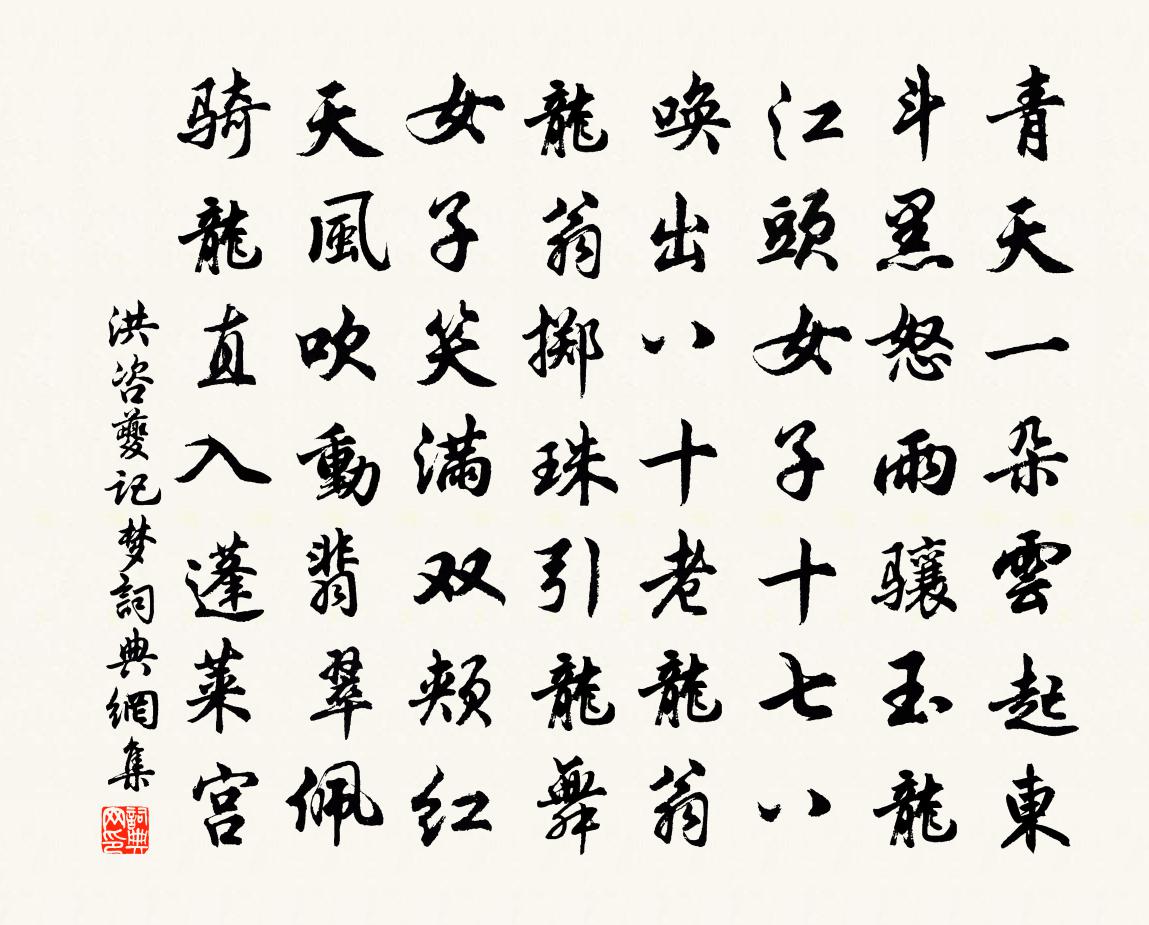 青天一朵雲起東
斗黑怒雨驤玉龍
江頭女子十七八
唤出八十老龍翁
龍翁擲珠引龍舞
女子笑满双頰红
天風吹動翡翠佩
骑龍直入蓬萊宫
洪咨夔记梦詞典網集
詞典网印